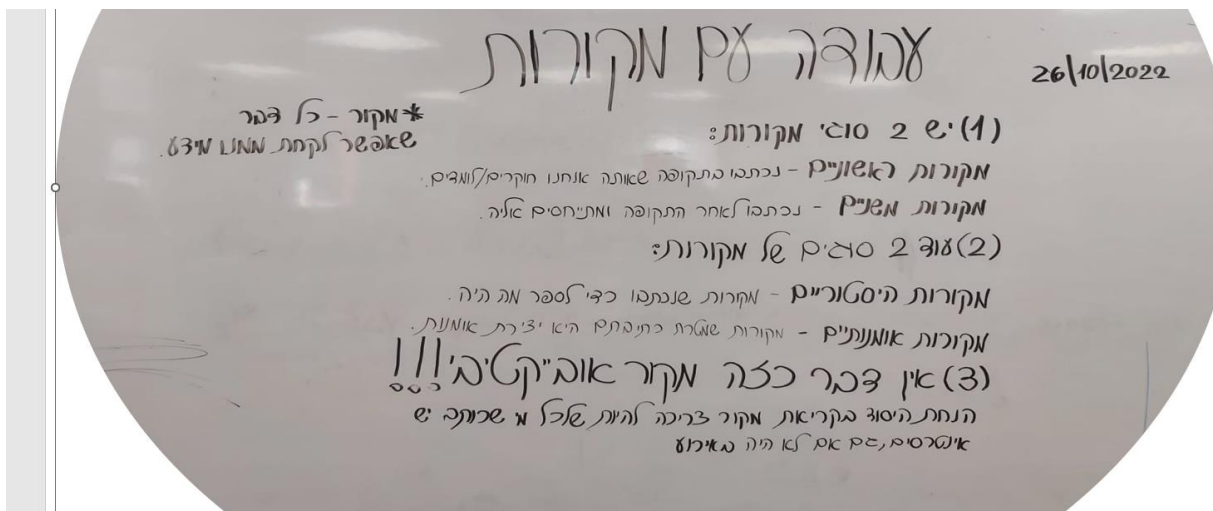 עבודה עם מקורות
26/10/2022
*מקור - כל דבר
שאפשר לקחת ממנו מידע.
(1) יש 2 סוגי מקורות:
מקורות ראשוניים - נכתבו בתקופה שאותה אנחנו חוקרים/לומדים.
מקורות משניים - נכתבו לאחר התקופה ומתייחסים אליה.
(2) עוד 2 סוגים של מקורות:
מקורות היסטוריים - מקורות שנכתבו כדי לספר מה היה.
מקורות אומנותיים - מקורות שמטרת כתיבתם היא יצירת אומנות.
(3) אין דבר כזה מקור אובייקטיבי!!!
הנחת היסוד בקריאת מקור צריכה להיות שלכל מי שכותב יש
אינטרסים, גם אם לא היה באירוע